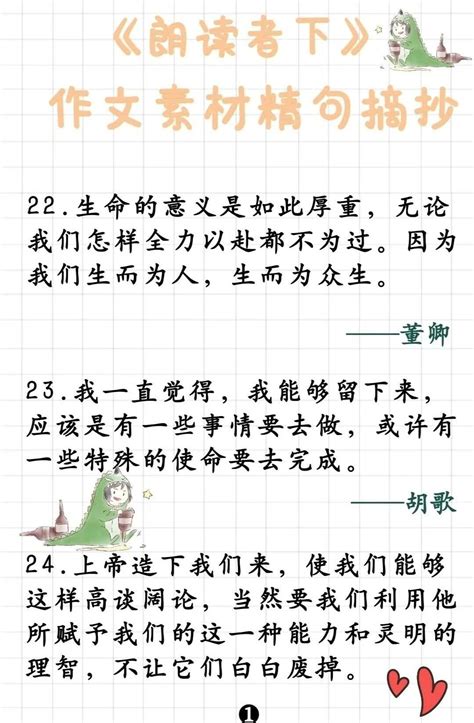 《朗读者下》
作文素材精句摘抄
22.生命的意义是如此厚重，无论
我们怎样全力以赴都不为过。因为
我们生而为人，生而为众生。
——董卿
23.我一直觉得，我能够留下来，
应该是有一些事情要去做，或许有
一些特殊的使命要去完成。
——胡歌
24.上帝造下我们来，使我们能够
这样高谈阔论，当然要我们利用他
所赋予我们的这一种能力和灵明的
理智，不让它们白白废掉。
1